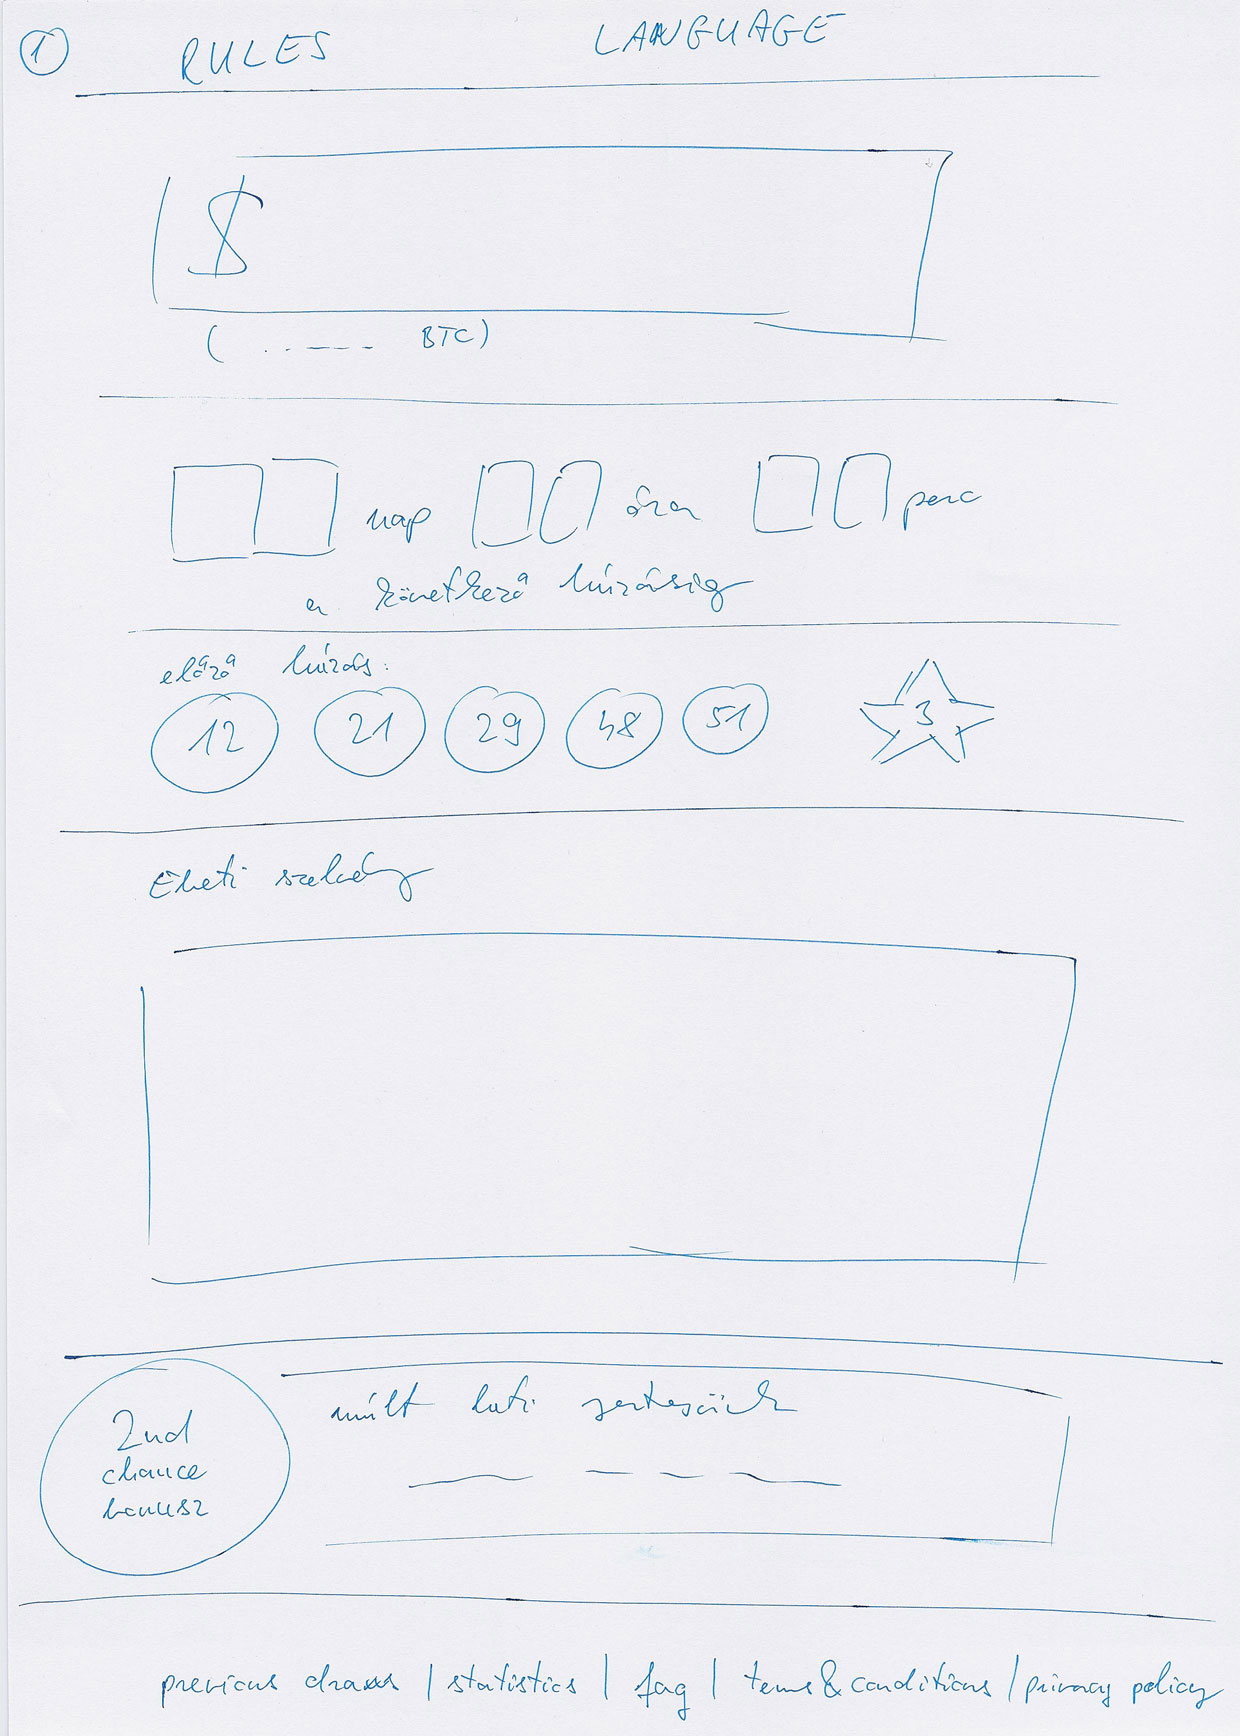 1 RULES LANGUAGE
$
( . . _ _ _ _ BTC)
nap óra perc
a következő húzásig
előző húzás:
12 21 29 48 51 3
Eheti szelvény
2nd
chance
bonusz
múlt heti
previous draws | statistics | faq | terms & conditions | privacy policy